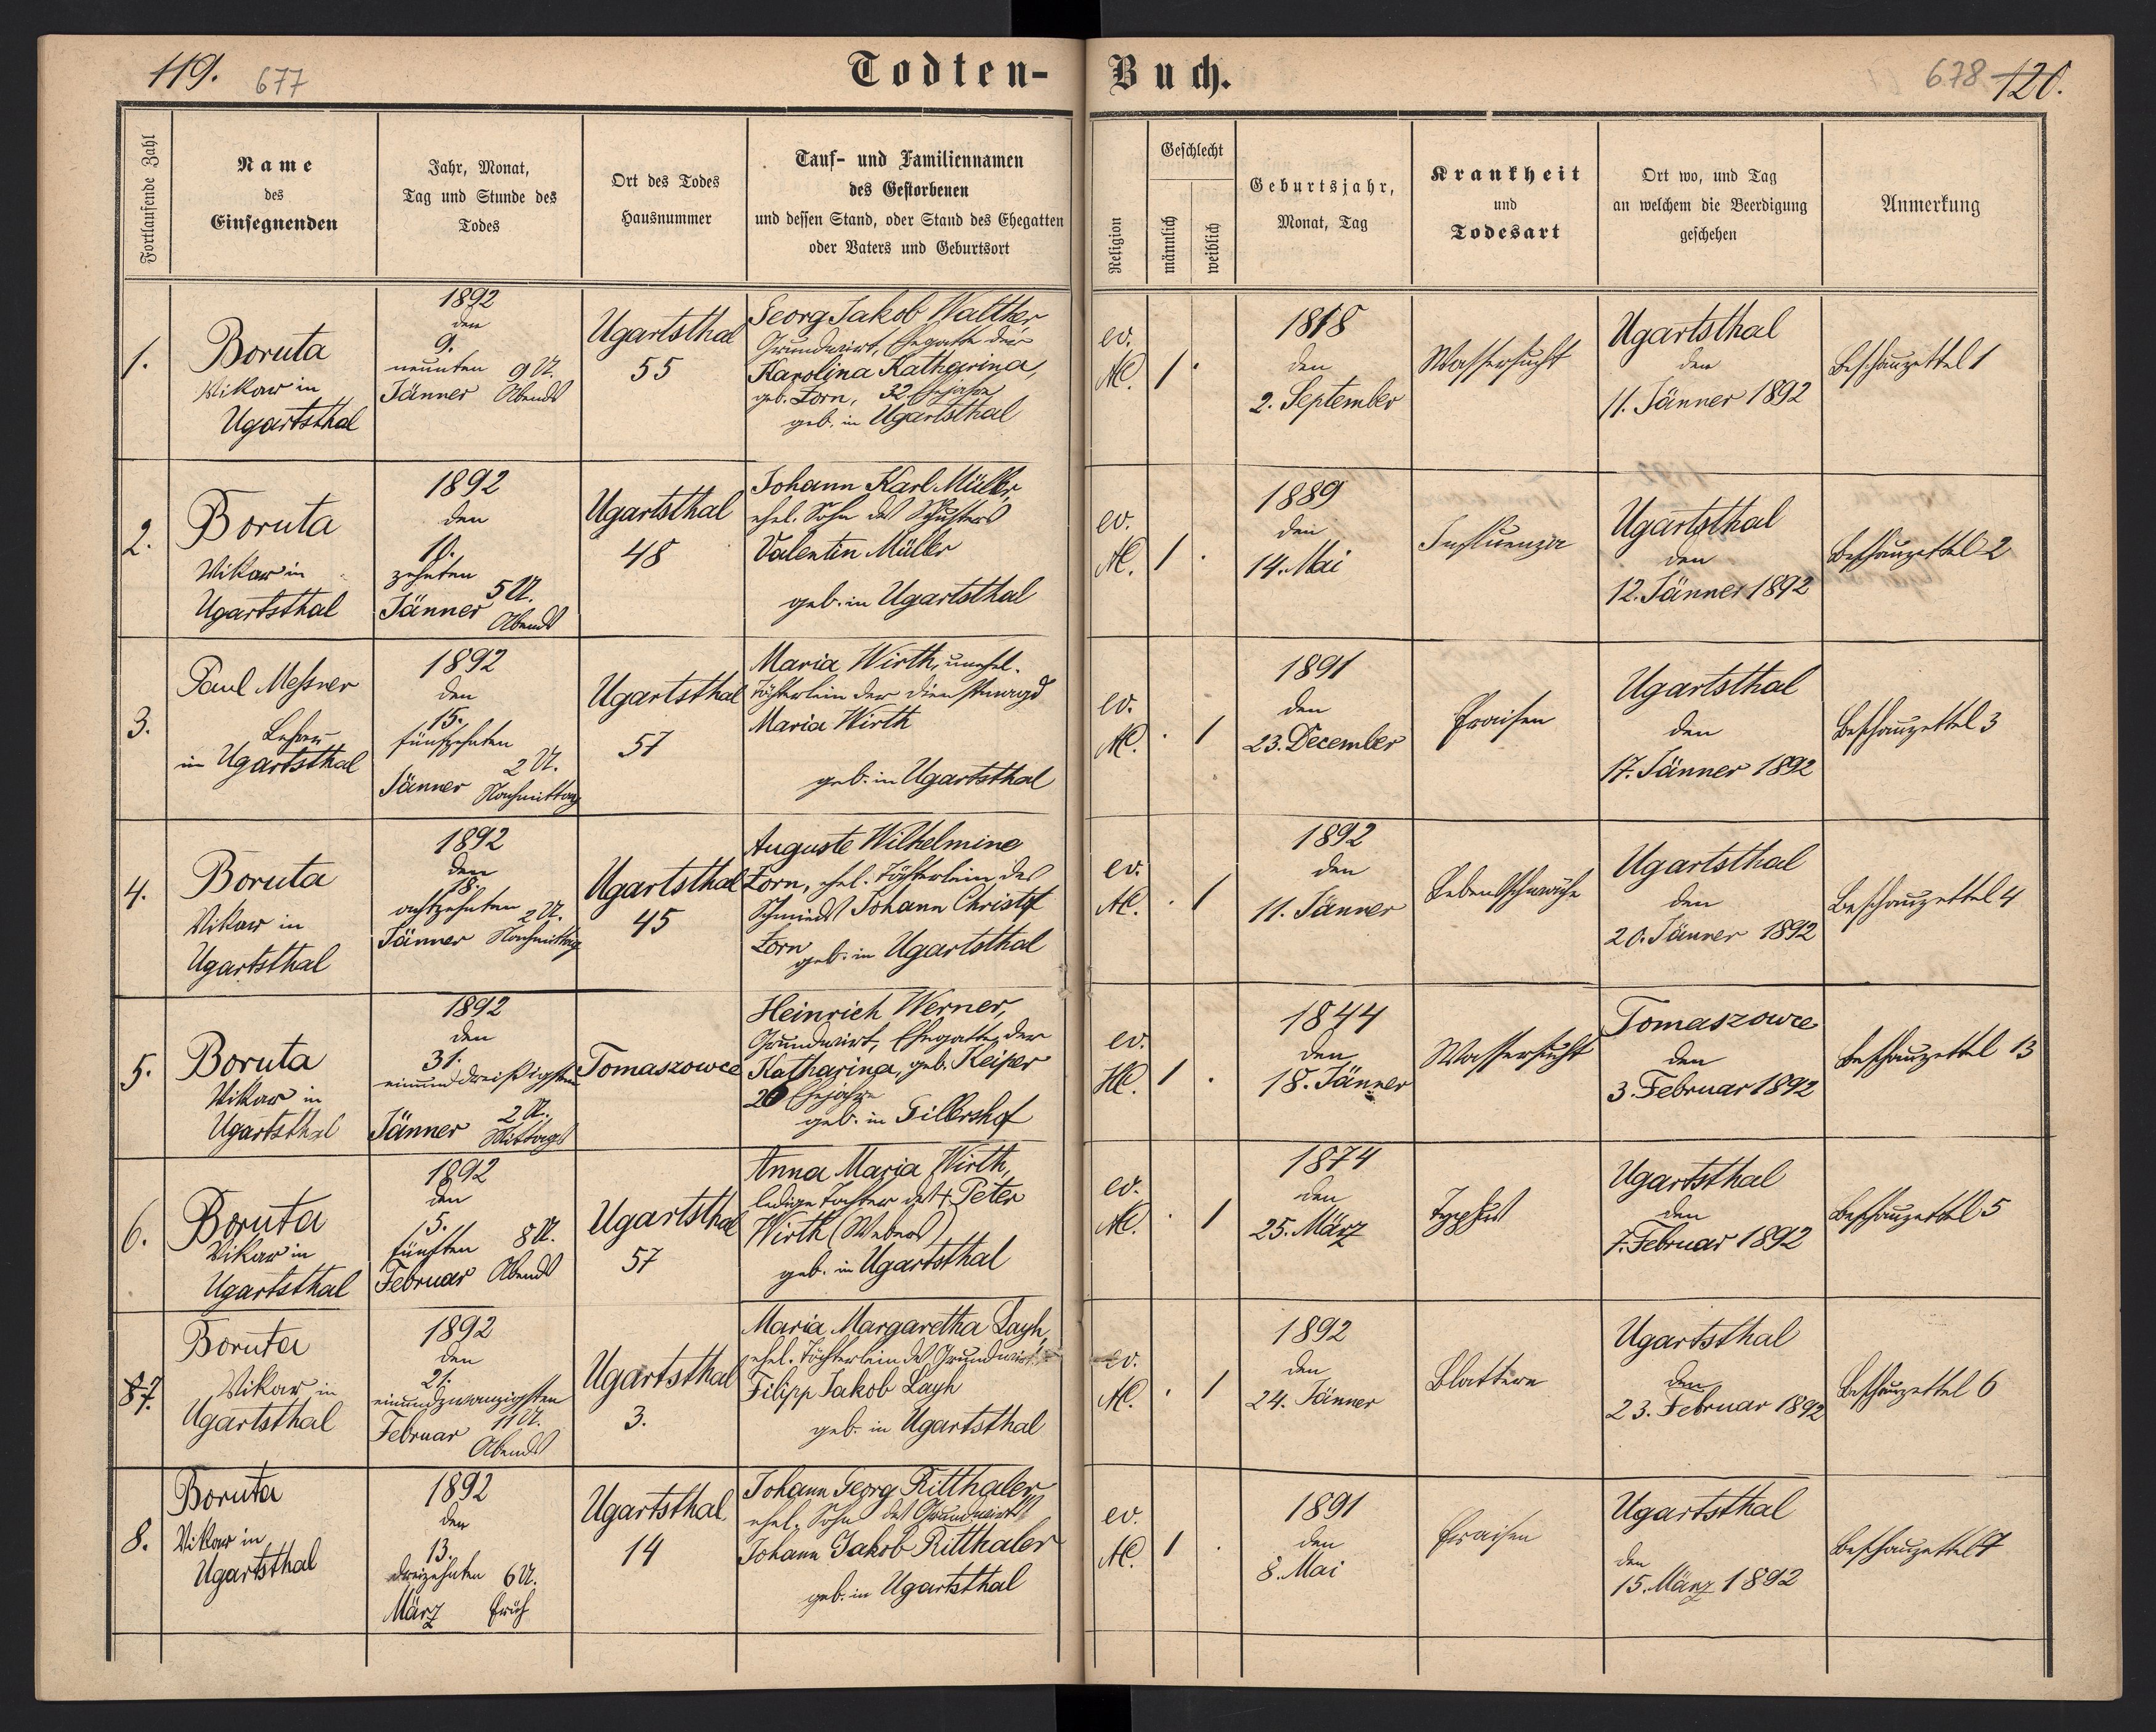 119. 677
Todten-Buch.
678 120.
Fortlaufende Zahl
Name
des
Einsegnenden
Jahr, Monat,
Tag und Stunde des
Todes
Ort des Todes
Hausnummer
Tauf- und Familiennamen
des Gestorbenen
und dessen Stand, oder Stand des Ehegatten
oder Vaters und Geburtsort
Religion
Geschlecht
männlich
weiblich
Geburtsjahr,
Monat, Tag
Krankheit
und
Todesart
Ort wo, und Tag
an welchem die Beerdigung
geschehen
Anmerkung
1.
Boruta
Vikar in
Ugartsthal
1892
den
9.
neunten 9 U.
Jänner Abends
Ugartsthal
55
Georg Jakob Walther
Grundwirt, Ehegatte der
Karolina Katharina,
geb. Zorn, 32 Ehejahre
geb. in Ugartsthal
ev.
A.C.
1 .
1818
den
2. September
Wassersucht
Ugartsthal
den
11. Jänner 1892
Beschauzettel 1
2.
Boruta
Vikar in
Ugartsthal
1892
den
10.
zehnten
5 U.
Jänner Abends
Ugartsthal
48
Johann Karl Müller,
ehel. Sohn des Schusters
Valentin Müller
geb. in Ugartsthal
ev.
A.C.
1 .
1889
den
14. Mai
Influenza
Ugartsthal
den
12. Jänner 1892
Beschauzettel 2
3.
Paul Messner
Lehrer
in Ugartsthal
1892
den
15.
fünfzehnten
2 U.
Jänner Nachmittag
Ugartsthal
57
Maria Wirth, unehel.
Töchterlein der Dienstmagd
Maria Wirth
geb. in Ugartsthal
ev.
A.C.
. 1
1891
den
23. December
Fraisen
Ugartsthal
den
17. Jänner 1892
Beschauzettel 3
4.
Boruta
Vikar in
Ugartsthal
1892
den
18.
achtzehnten 2 U.
Jänner Nachmittag
Ugartsthal
45
Auguste Wilhelmine
Zorn, ehel. Töchterlein des
Schmieds Johann Christof
Zorn
geb. in Ugartsthal
ev.
A.C.
. 1
1892
den
11. Jänner
Lebensschwäche
Ugartsthal
den
20. Jänner 1892
Beschauzettel 4
5.
Boruta
Vikar in
Ugartsthal
1892
den
31.
einunddreißigsten
2 U.
Jänner Mittags
Tomaszowce
Heinrich Werner,
Grundwirt, Ehegatte der
Katharina, geb. Keiper
20 Ehejahre
geb. in Gillershof
ev.
H.C.
1 .
1844
den
18. Jänner
Wassersucht
Tomaszowce
den
3. Februar 1892
Beschauzettel 13
6.
Boruta
Vikar in
Ugartsthal
1892
den
5.
fünften 8 U.
Februar Abends
Ugartsthal
57
Anna Maria Wirth,
ledige Tochter des † Peter
Wirth (Webers)
geb. in Ugartsthal
ev.
A.C.
. 1
1874
den
25. März
Typhus
Ugartsthal
den
7. Februar 1892
Beschauzettel 5
7.
Boruta
Vikar in
Ugartsthal
1892
den
21.
einundzwanzigsten
11 U.
Februar Abends
Ugartsthal
3.
Maria Margaretha Layh,
ehel. Töchterlein des Grundwirts
Filipp Jakob Layh
geb. in Ugartsthal
ev.
A.C.
. 1
1892
den
24. Jänner
Blattern
Ugartsthal
den
23. Februar 1892
Beschauzettel 6
8.
Boruta
Vikar in
Ugartsthal
1892
den
13.
dreizehnten 6 U.
März früh
Ugartsthal
14
Johann Georg Ritthaler
ehel. Sohn des Grundwirts
Johann Jakob Ritthaler
geb. in Ugartsthal
ev.
A.C.
1 .
1891
den
8. Mai
Fraisen
Ugartsthal
den
15. März 1892
Beschauzettel 7